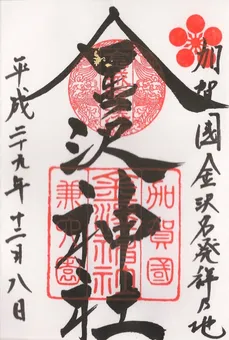 加賀國金沢名発祥乃地
金沢神社
加賀國
金沢神社
兼六園
平成二十九年十二月八日